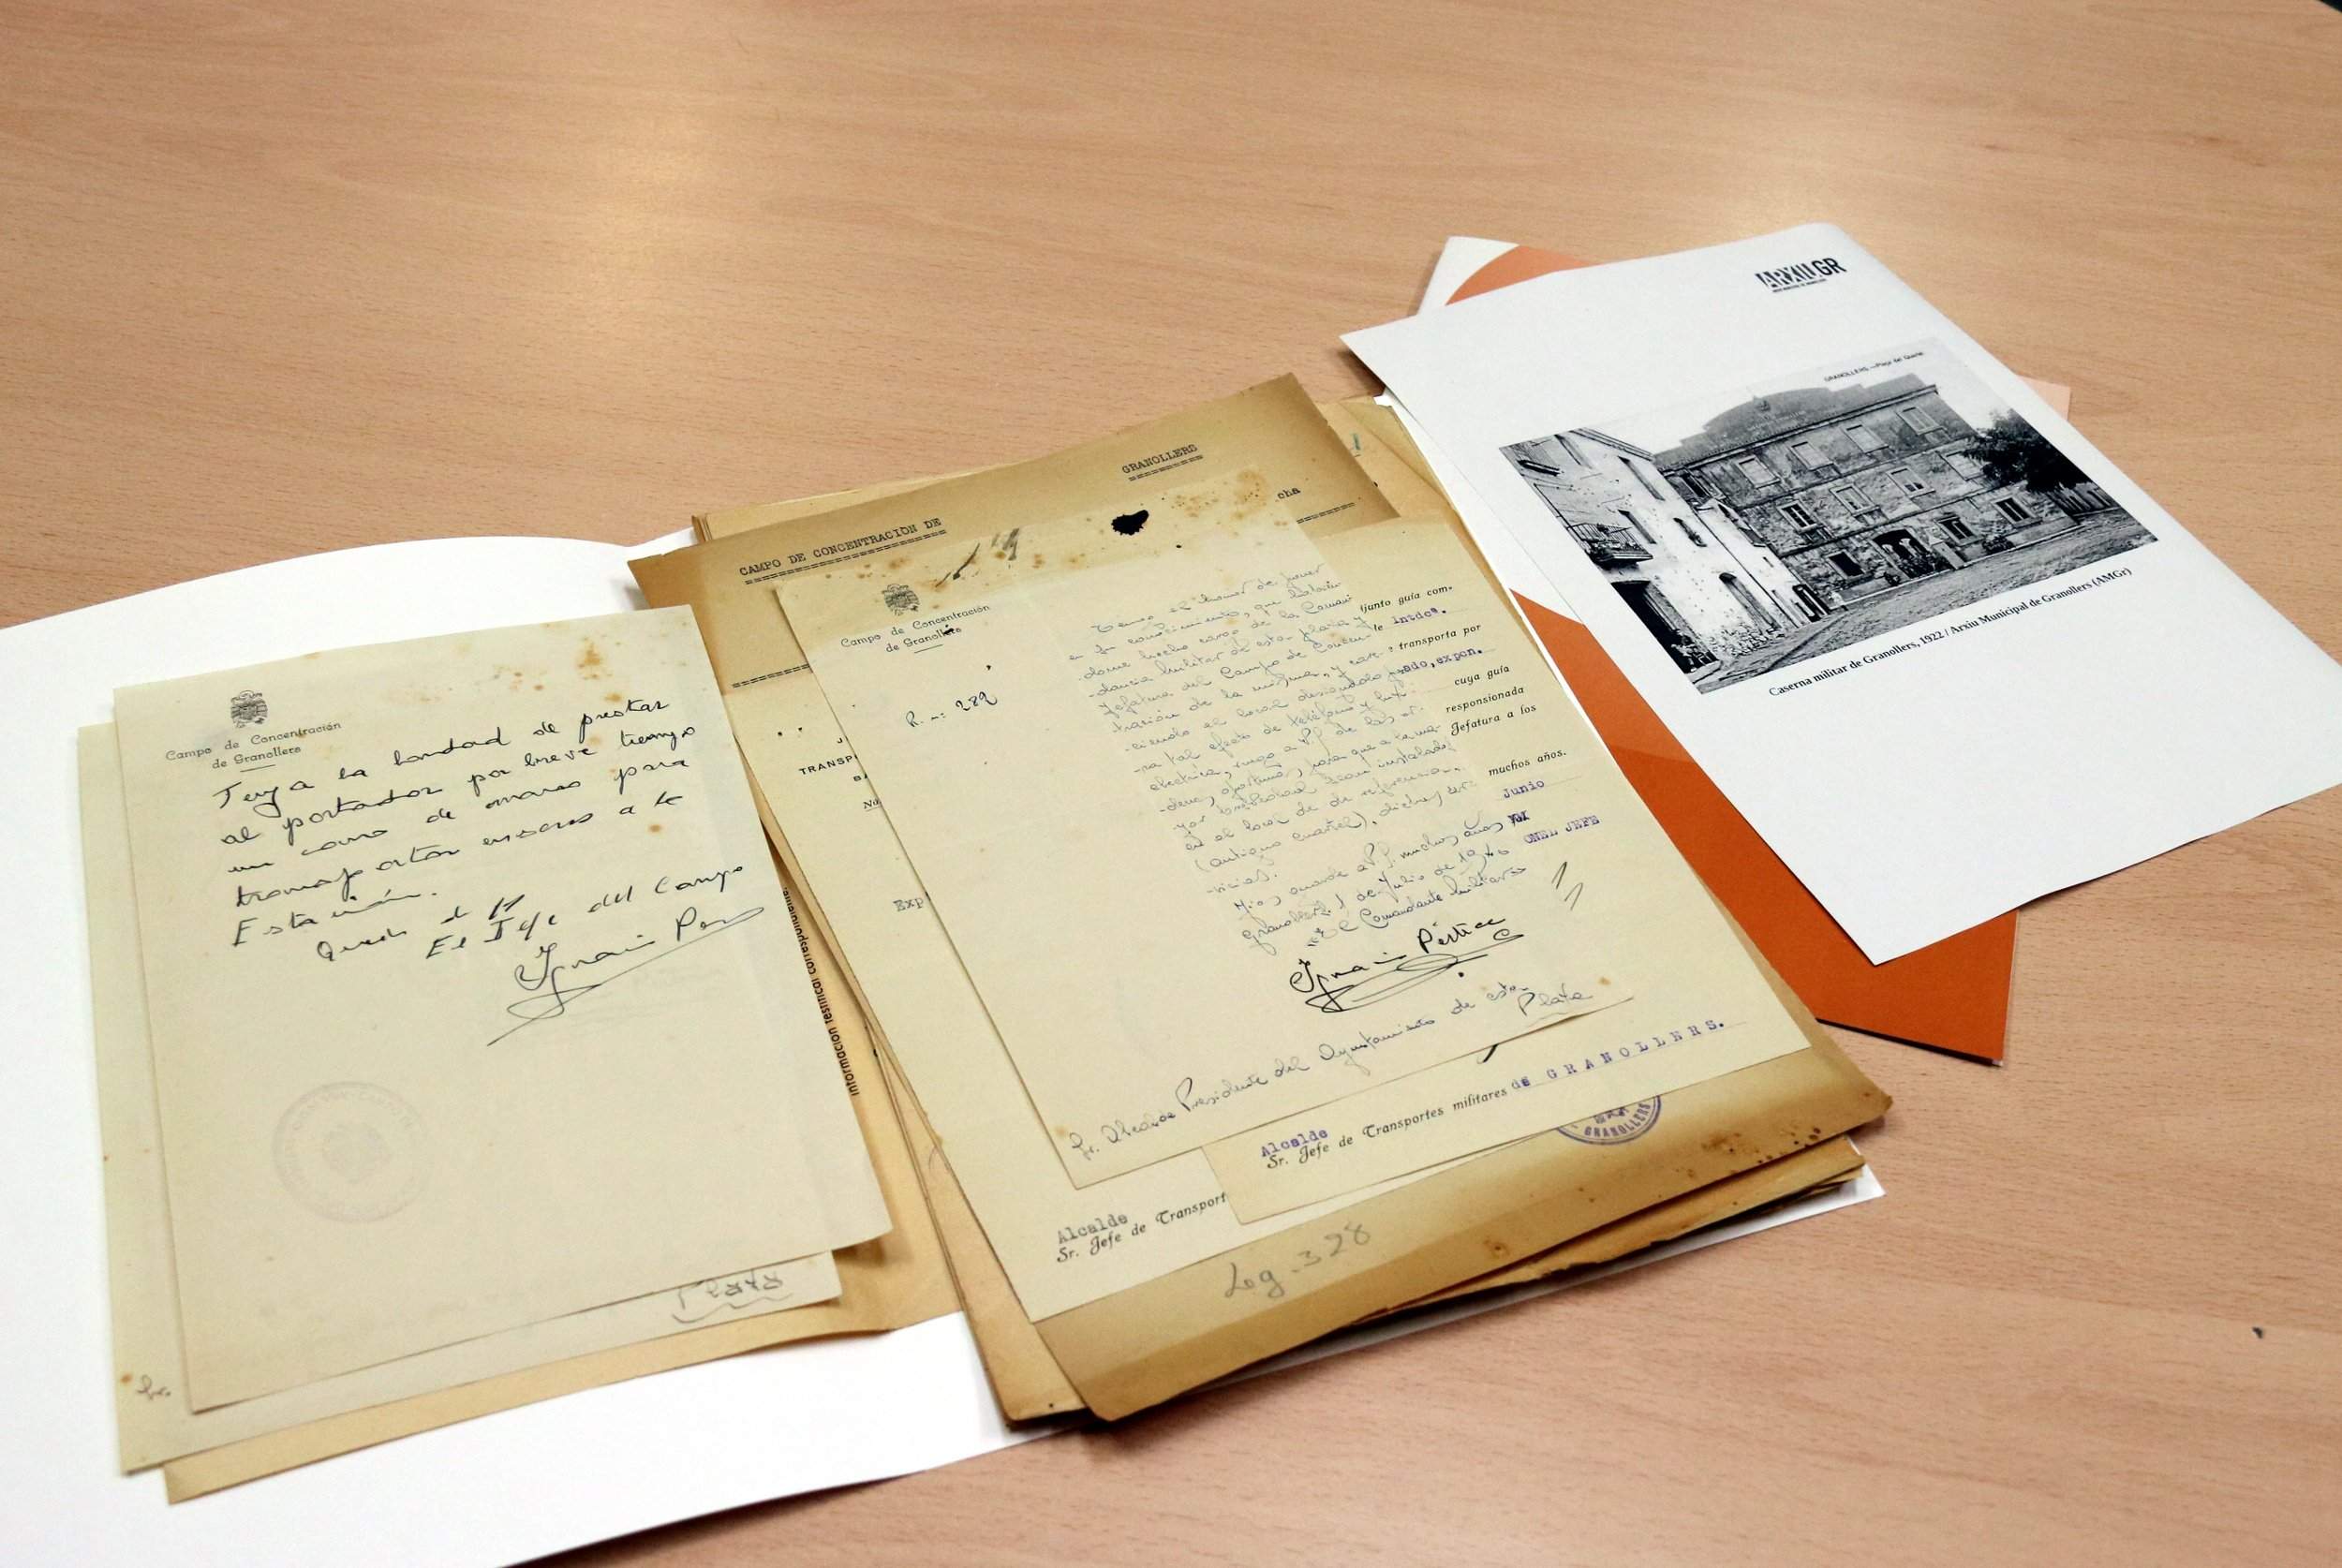 Campo de Concentración
de Granollers
Tenga la bondad de prestar
al portador por breve tiempo
un carro de mano para
transportar enseres a la
Estación.
El Jefe del Campo
Ignacio
Plaza
CAMPO DE CONCENTRACIÓN DE
GRANOLLERS
cha
Campo de Concentración
de Granollers
R. n: 282
Tengo el honor de poner
en su conocimiento, que habién
-dome hecho cargo de la Coman
-dancia Militar de esta plaza y
Jefatura del Campo de Concen
-tración de la misma, y care-
-ciendo el local designado pa-
-ra tal efecto de teléfono y luz
eléctrica, ruego a V.S. de las or-
-denes oportunas, para que a la ma-
-yor brevedad sean instalados
en el local de referencia
(antiguo cuartel), dichos ser-
-vicios.
Dios guarde a V.S. muchos años
Granollers 1 de Julio de 1940
El Comandante Militar
Ignacio
Sr. Alcalde Presidente del Ayuntamiento de esta
Plaza
djunto guía com-
le Intdcª.
transporta por
ado, expon.
cuya guía
responsionada
Jefatura a los
muchos años.
Junio
ONEL JEFE
TRANSP
Exp
información testifical correspondiente
Alcalde
Sr. Jefe de Transportes militares de GRANOLLERS.
GRANOLLERS
Alcalde
Sr. Jefe de Transport
Leg. 328
ARXIU GR
GRANOLLERS.—Plaça del Quartel
Caserna militar de Granollers, 1922 / Arxiu Municipal de Granollers (AMGr)